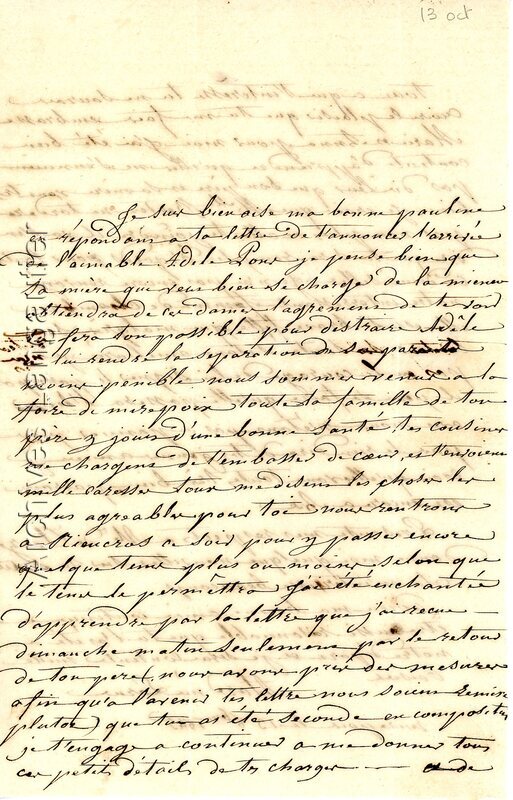 13 oct
Je suis bien aise ma bonne pauline
en répondans a ta lettre de t'annoncer l'arrivée
de l'aimable Adèle Pons je pense bien que
ta mère qui veux bien se charger de la mienne
obtiendra de ces dames l'agrement de te voir
fera ton possible pour distraire Adèle
lui rendre la separation de
moins penible nous sommes venus a la
foire de mirepoix toute la famille de ton
père y jouis d'une bonne santé tes cousines
me chargens de t'embrasser de cœur, et t'envoiens
mille caresses tous me disens les choses les
plus agreables pour toi nous rentrons
a Rieucros ce soir pour y passer encore
quelque tems plus ou moins selon que
le tems le permêttra j'ai été enchantée
d'apprendre par la lettre que j'ai recue
dimanche matin seulement par le retour
de ton père (nous avons pris des mesures
afin qu'a l'avenir tes lettre nous soiens remise
plutot) que tu as été seconde en composition
je t'engage a continuer a me donner tous
ces petits détails de tes charges — de
Archives